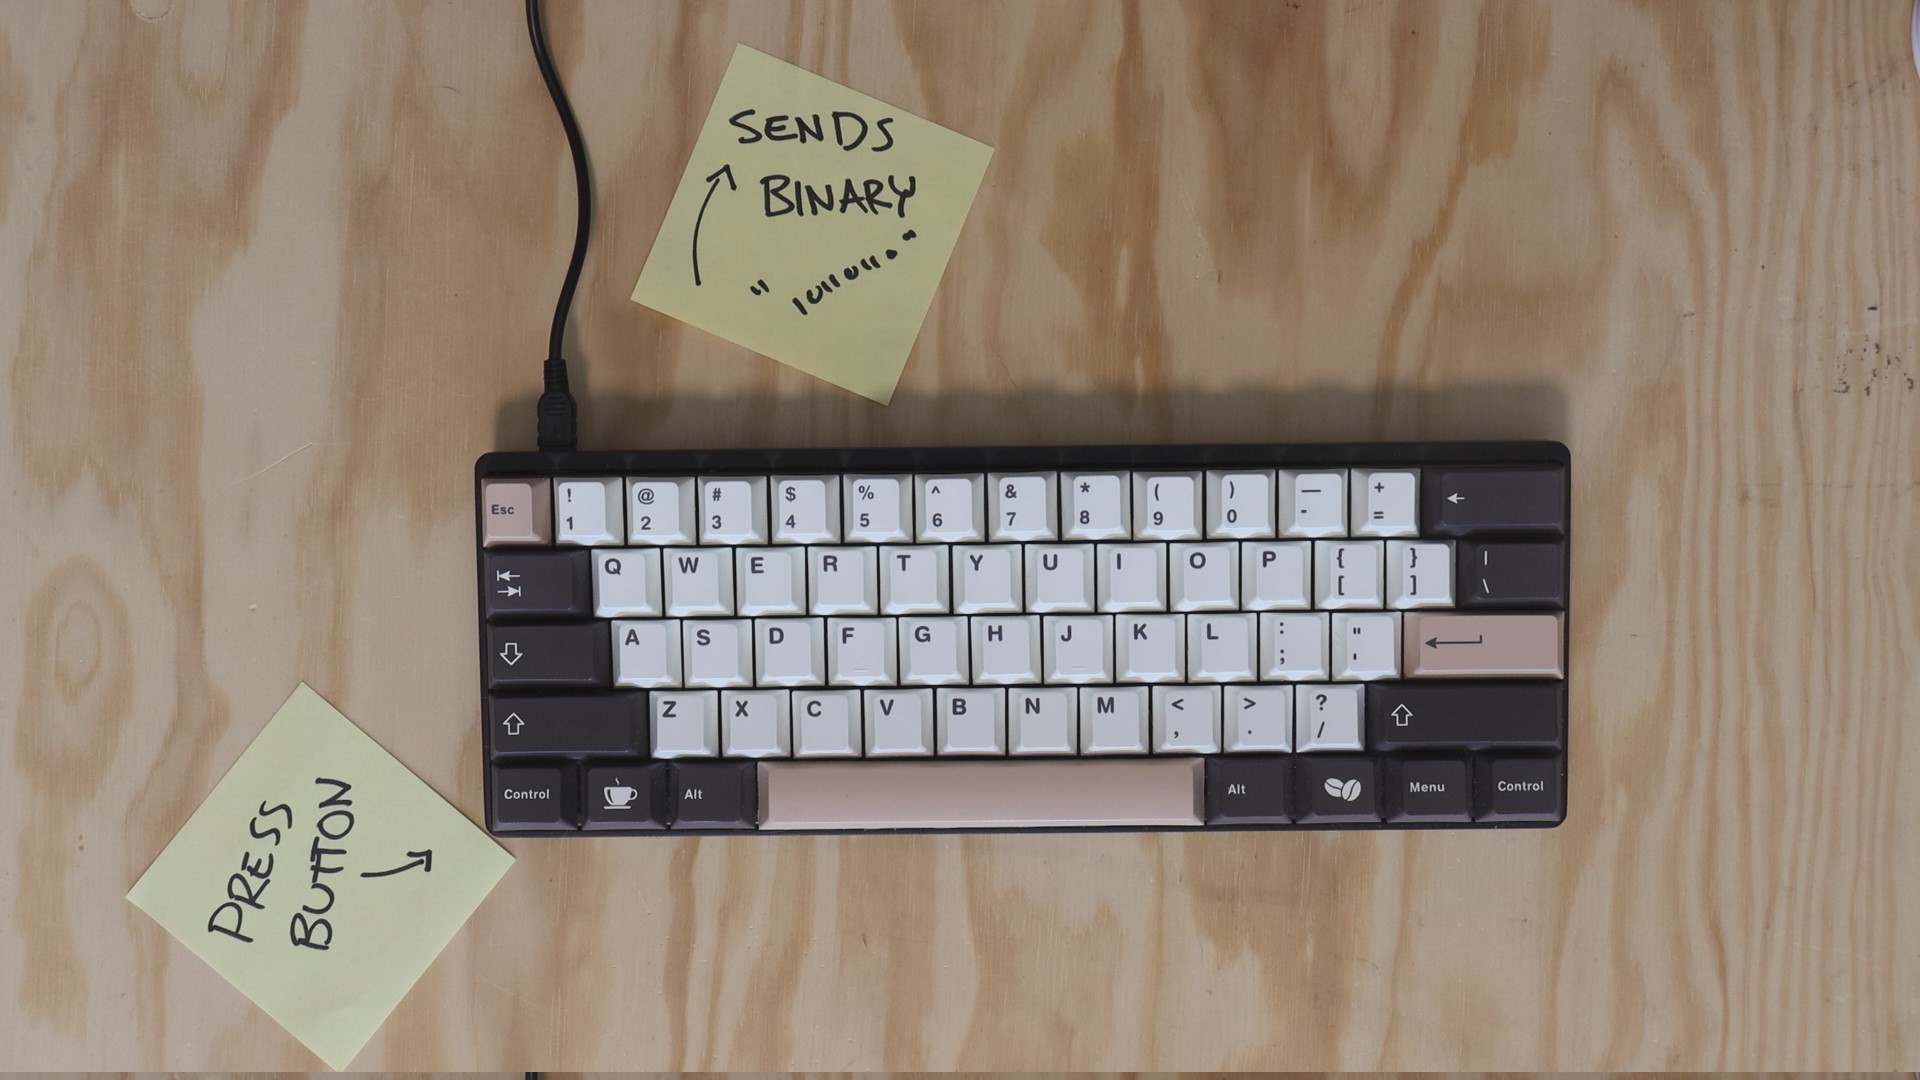 SENDS
BINARY
Esc ! 1 @ 2 # 3 $ 4 % 5 ^ 6 & 7 * 8 ( 9 ) 0 — - + =
Q W E R T Y U I O P { [ } ] | \
A S D F G H J K L : ; " '
Z X C V B N M < , > . ? /
Control Alt Alt Menu Control
PRESS
BUTTON